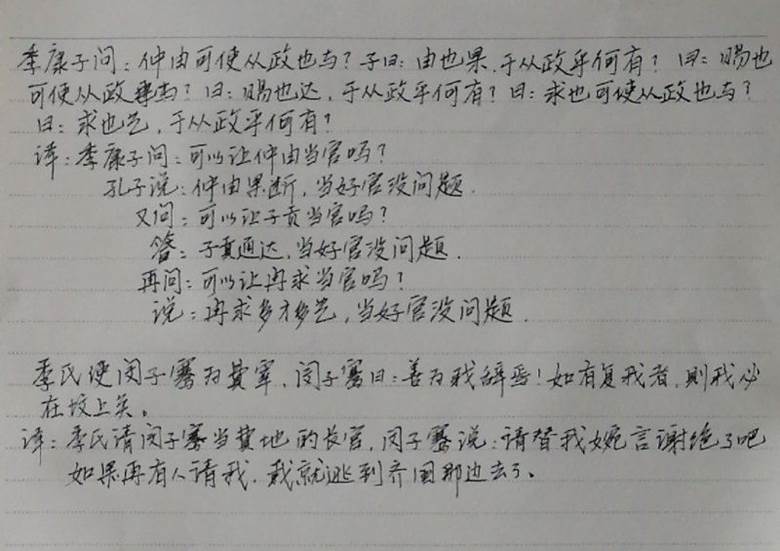 季康子问：仲由可使从政也与？子曰：由也果，于从政乎何有？曰：赐也
可使从政也与？曰：赐也达，于从政乎何有？曰：求也可使从政也与？
曰：求也艺，于从政乎何有？
译：季康子问：可以让仲由当官吗？
孔子说：仲由果断，当好官没问题．
又问：可以让子贡当官吗？
答：子贡通达，当好官没问题．
再问：可以让冉求当官吗？
说：冉求多才多艺，当好官没问题．
季氏使闵子骞为费宰，闵子骞曰：善为我辞焉！如有复我者，则我必
在汶上矣。
译：季氏请闵子骞当费地的长官，闵子骞说：请替我婉言谢绝了吧
如果再有人请我，我就逃到齐国那边去了。